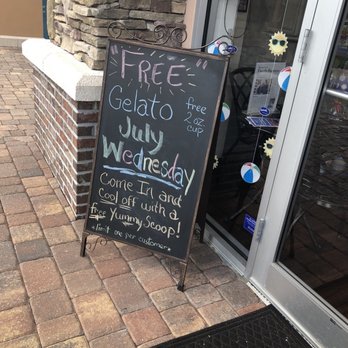 "FREE"
Gelato
free
2 oz
cup
July
Wednesday
Come In and
cool off with a
free Yummy Scoop!
*limit one per customer*